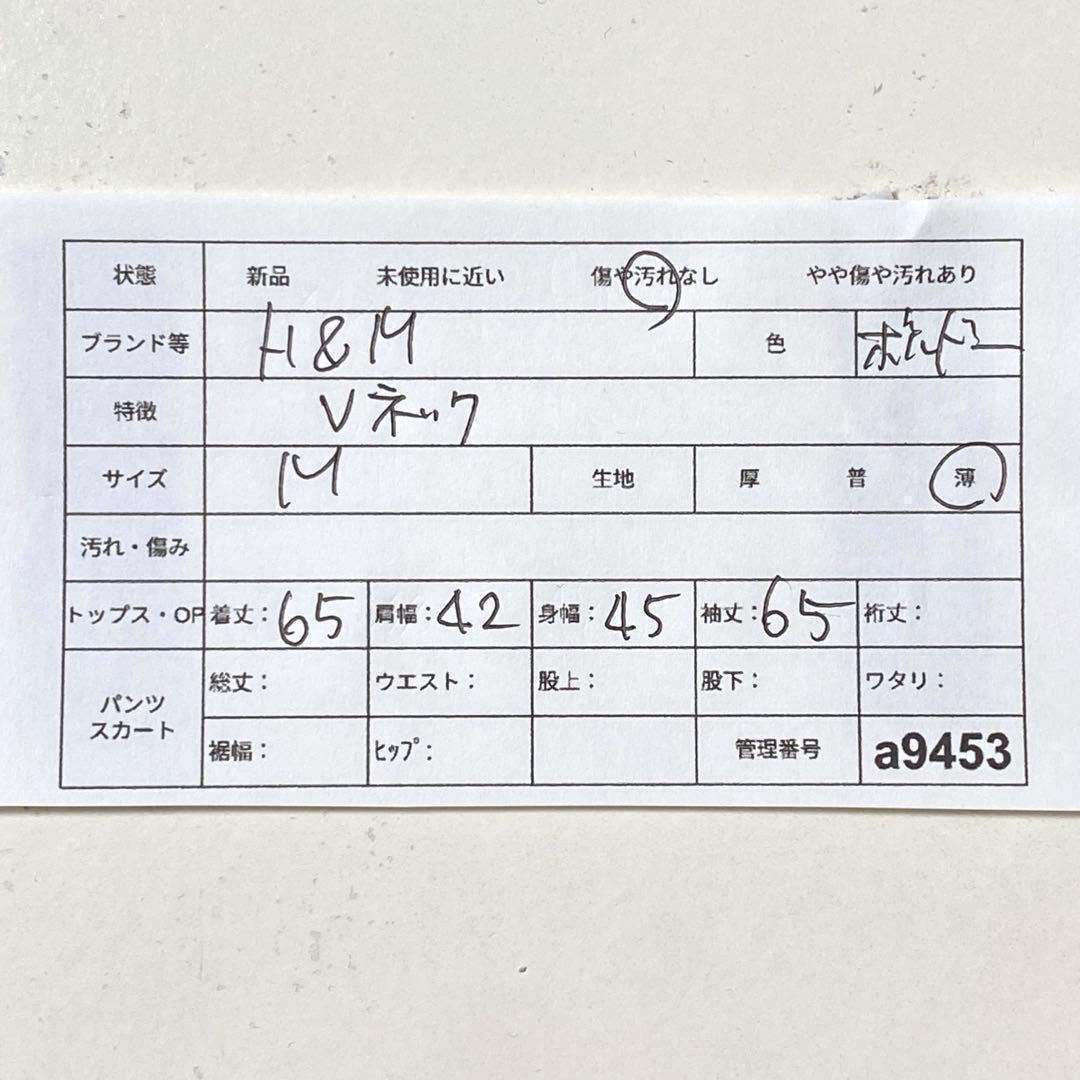 状態 新品 未使用に近い 傷や汚れなし やや傷や汚れあり
ブランド等 H&M 色
特徴 Vネック
サイズ M 生地 厚 普 薄
汚れ・傷み
トップス・OP 着丈:65 肩幅:42 身幅:45 袖丈:65 裄丈:
パンツ スカート 総丈: ウエスト: 股上: 股下: ワタリ:
裾幅: ヒップ: 管理番号 a9453